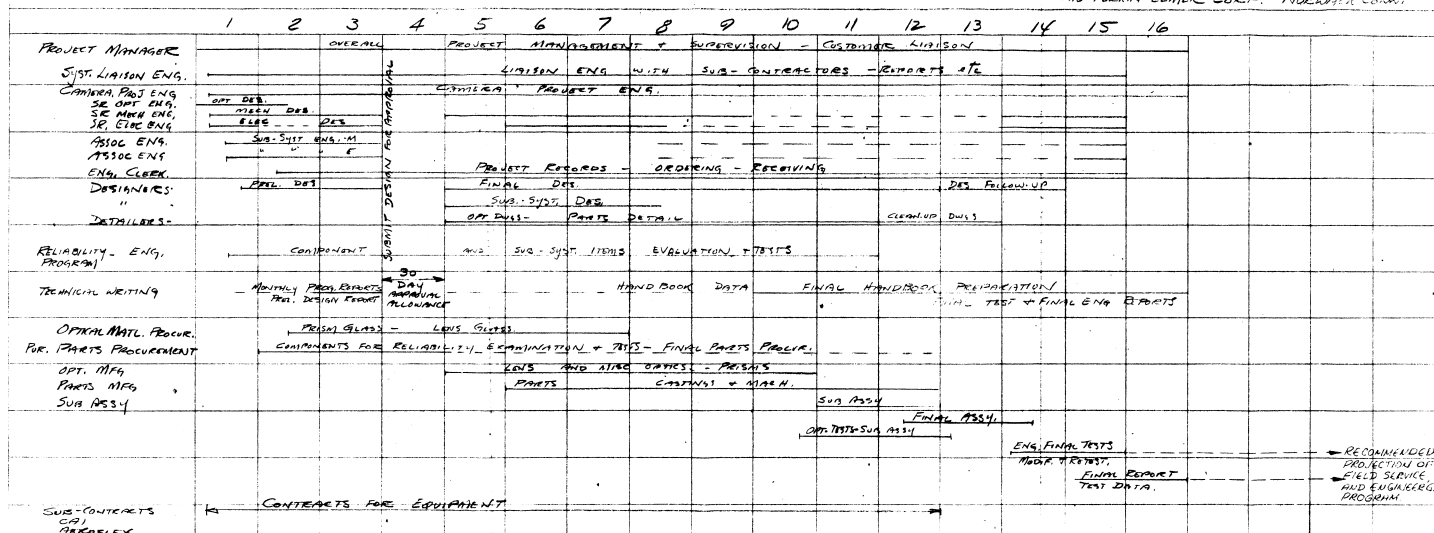 PERKIN ELMER CORP. NORWALK CONN.
1 2 3 4 5 6 7 8 9 10 11 12 13 14 15 16
PROJECT MANAGER OVERALL PROJECT MANAGEMENT & SUPERVISION - CUSTOMER LIAISON
SYST. LIAISON ENG. LIAISON ENG WITH SUB-CONTRACTORS - REPORTS etc
CAMERA, PROJ ENG CAMERA PROJECT ENG.
SR OPT ENG. OPT DES.
SR MECH ENG. MECH DES.
SR, ELEC ENG ELEC DES
ASSOC ENG. SUB-SYST ENG. - M
ASSOC ENG " " " E
ENG, CLERK. PROJECT RECORDS - ORDERING - RECEIVING
DESIGNERS. PREL. DES FINAL DES. DES FOLLOW-UP
" SUB.-SYST. DES.
DETAILERS- OPT DWGS - PARTS DETAIL CLEAN-UP DWGS
SUBMIT DESIGN FOR APPROVAL
RELIABILITY - ENG. COMPONENT AND SUB-SYST. ITEMS EVALUATION + TESTS
PROGRAM
30
DAY
APPROVAL
ALLOWANCE
TECHNICAL WRITING MONTHLY PROG. REPORTS HAND BOOK DATA FINAL HANDBOOK PREPARIATION
PREL. DESIGN REPORT FINAL TEST + FINAL ENG REPORTS
OPTICAL MATL. PROCUR. PRISM GLASS - LENS GLASS
PUR. PARTS PROCUREMENT COMPONENTS FOR RELIABILITY EXAMINATION + TESTS - FINAL PARTS PROCUR.
OPT. MFG LENS AND MISC OPTICS. - PRISMS
PARTS MFG PARTS CASTINGS & MACH.
SUB ASSY SUB ASSY
FINAL ASSY.
OPT. TESTS-SUB ASSY
ENG. FINAL TESTS
MODIF. + RETEST.
FINAL REPORT
TEST DATA.
RECOMMENDED
PROJECTION OF
FIELD SERVICE
AND ENGINEERG.
PROGRAM
SUB-CONTRACTS CONTRACTS FOR EQUIPMENT
CAI